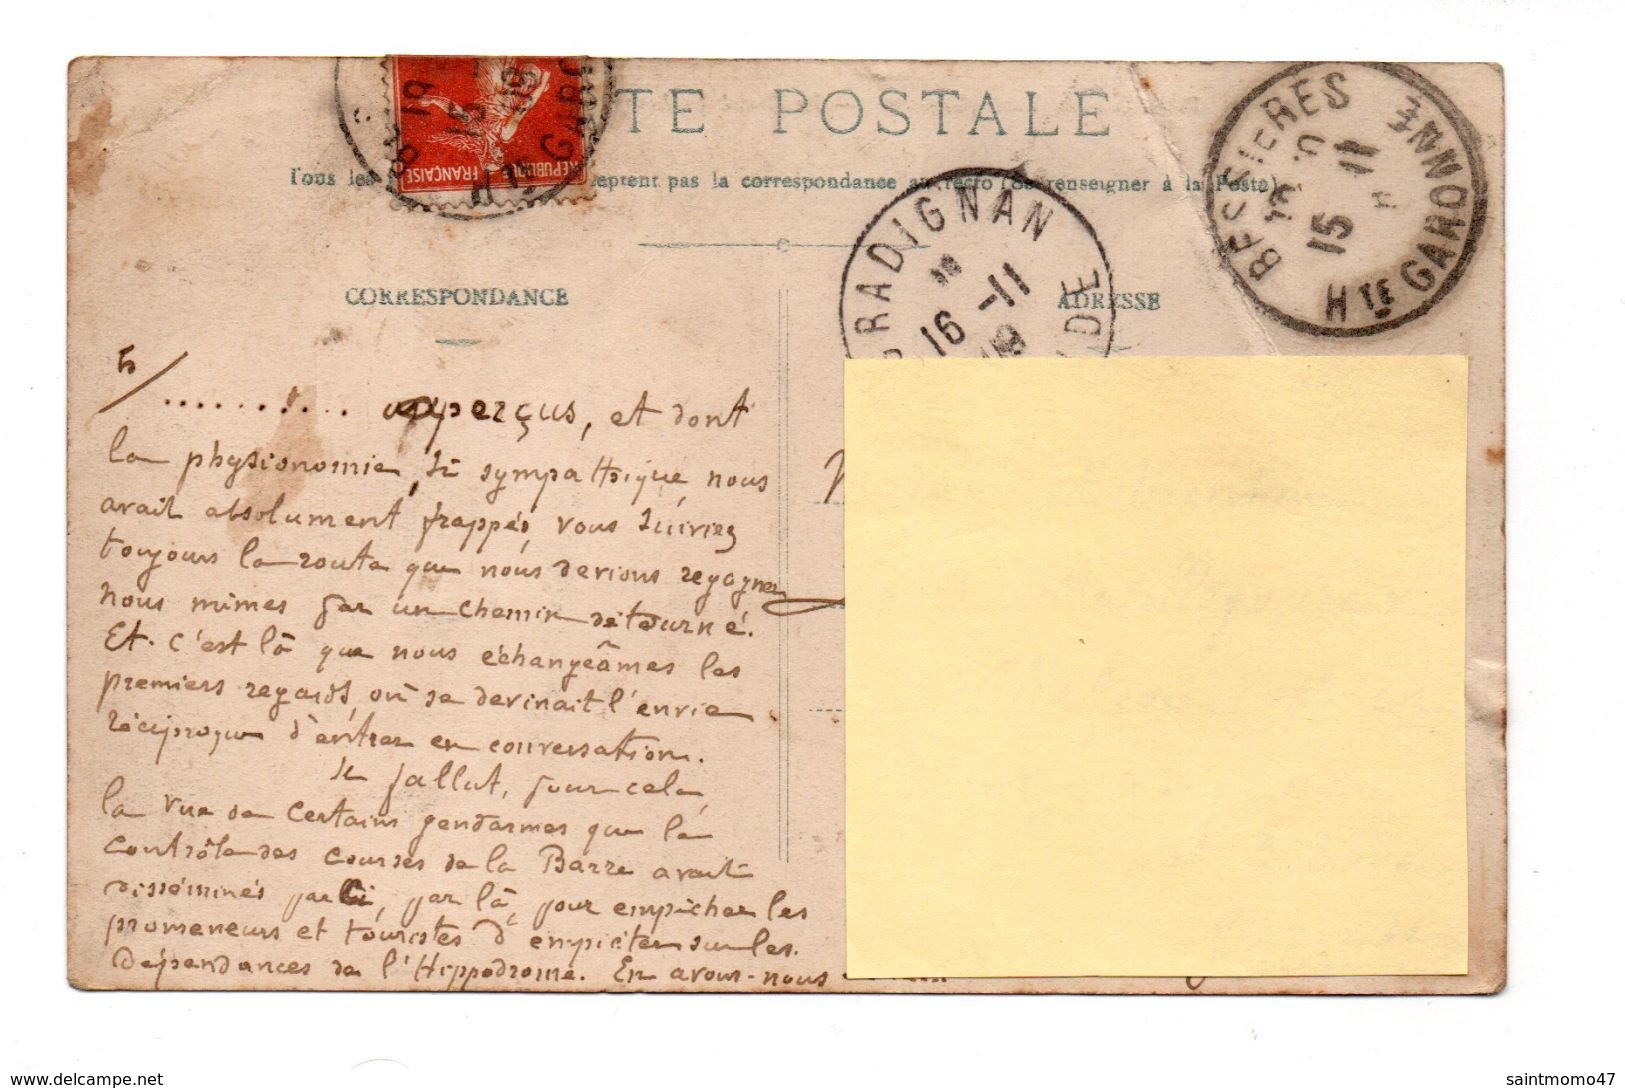 TE POSTALE
Tous les ceptent pas la correspondance au recto (Se renseigner à la Poste)
REPUBLIQUE
FRANÇAISE
GRADIGNAN
16 -11
DE
BESSIERES
15 11
Hte GARONNE
CORRESPONDANCE
ADRESSE
5/ .......... aperçus, et dont
la physionomie, si sympathique, nous
avait absolument frappés, vous suiviez
toujours la route que nous devions regagner
nous mêmes par un chemin détourné.
Et c'est là que nous échangeâmes les
premiers regards, où se devinait l'envie
réciproque d'entrer en conversation.
Il fallut, pour cela,
la vue de certains gendarmes que le
contrôle des courses de la Barre avait
disséminés par ci, par là, pour empêcher les
promeneurs et touristes d'empiéter sur les
dépendances de l'Hippodrome. En avons-nous
delcampe.net
saintmomo47